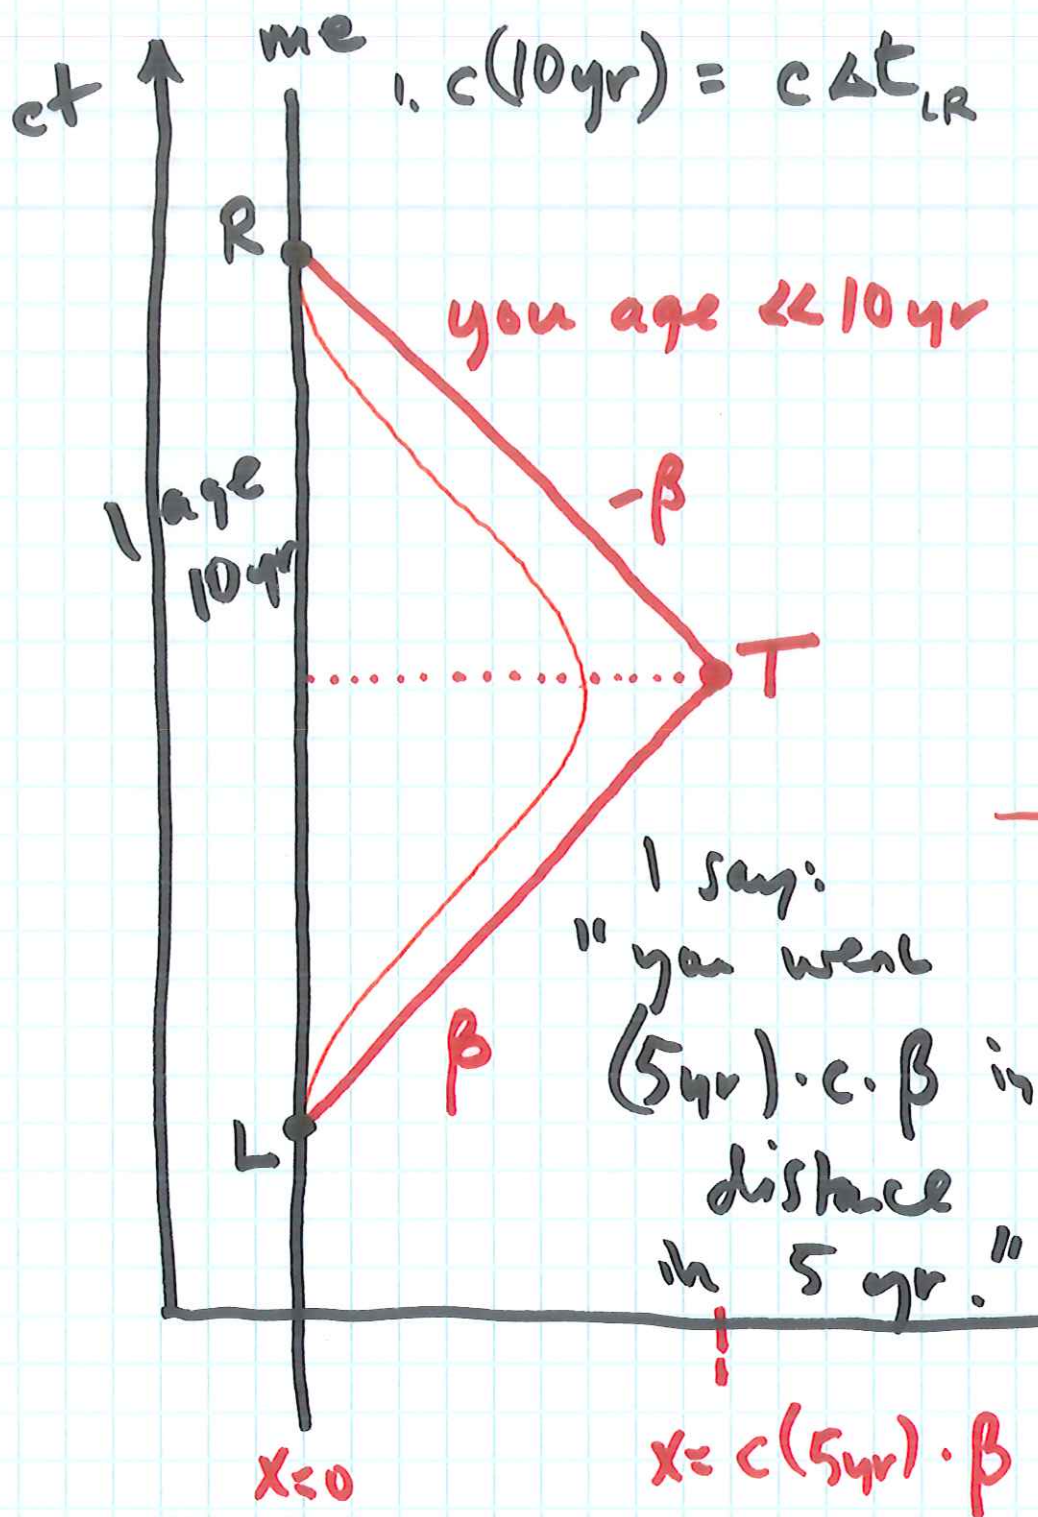 me
ct
1. c(10yr) = c Δt_LR
R
you age << 10 yr
-β
I age
10 yr
T
I say:
"you went
(5yr)·c·β in
distance
in 5 yr."
β
L
x=0
x= c(5yr)·β